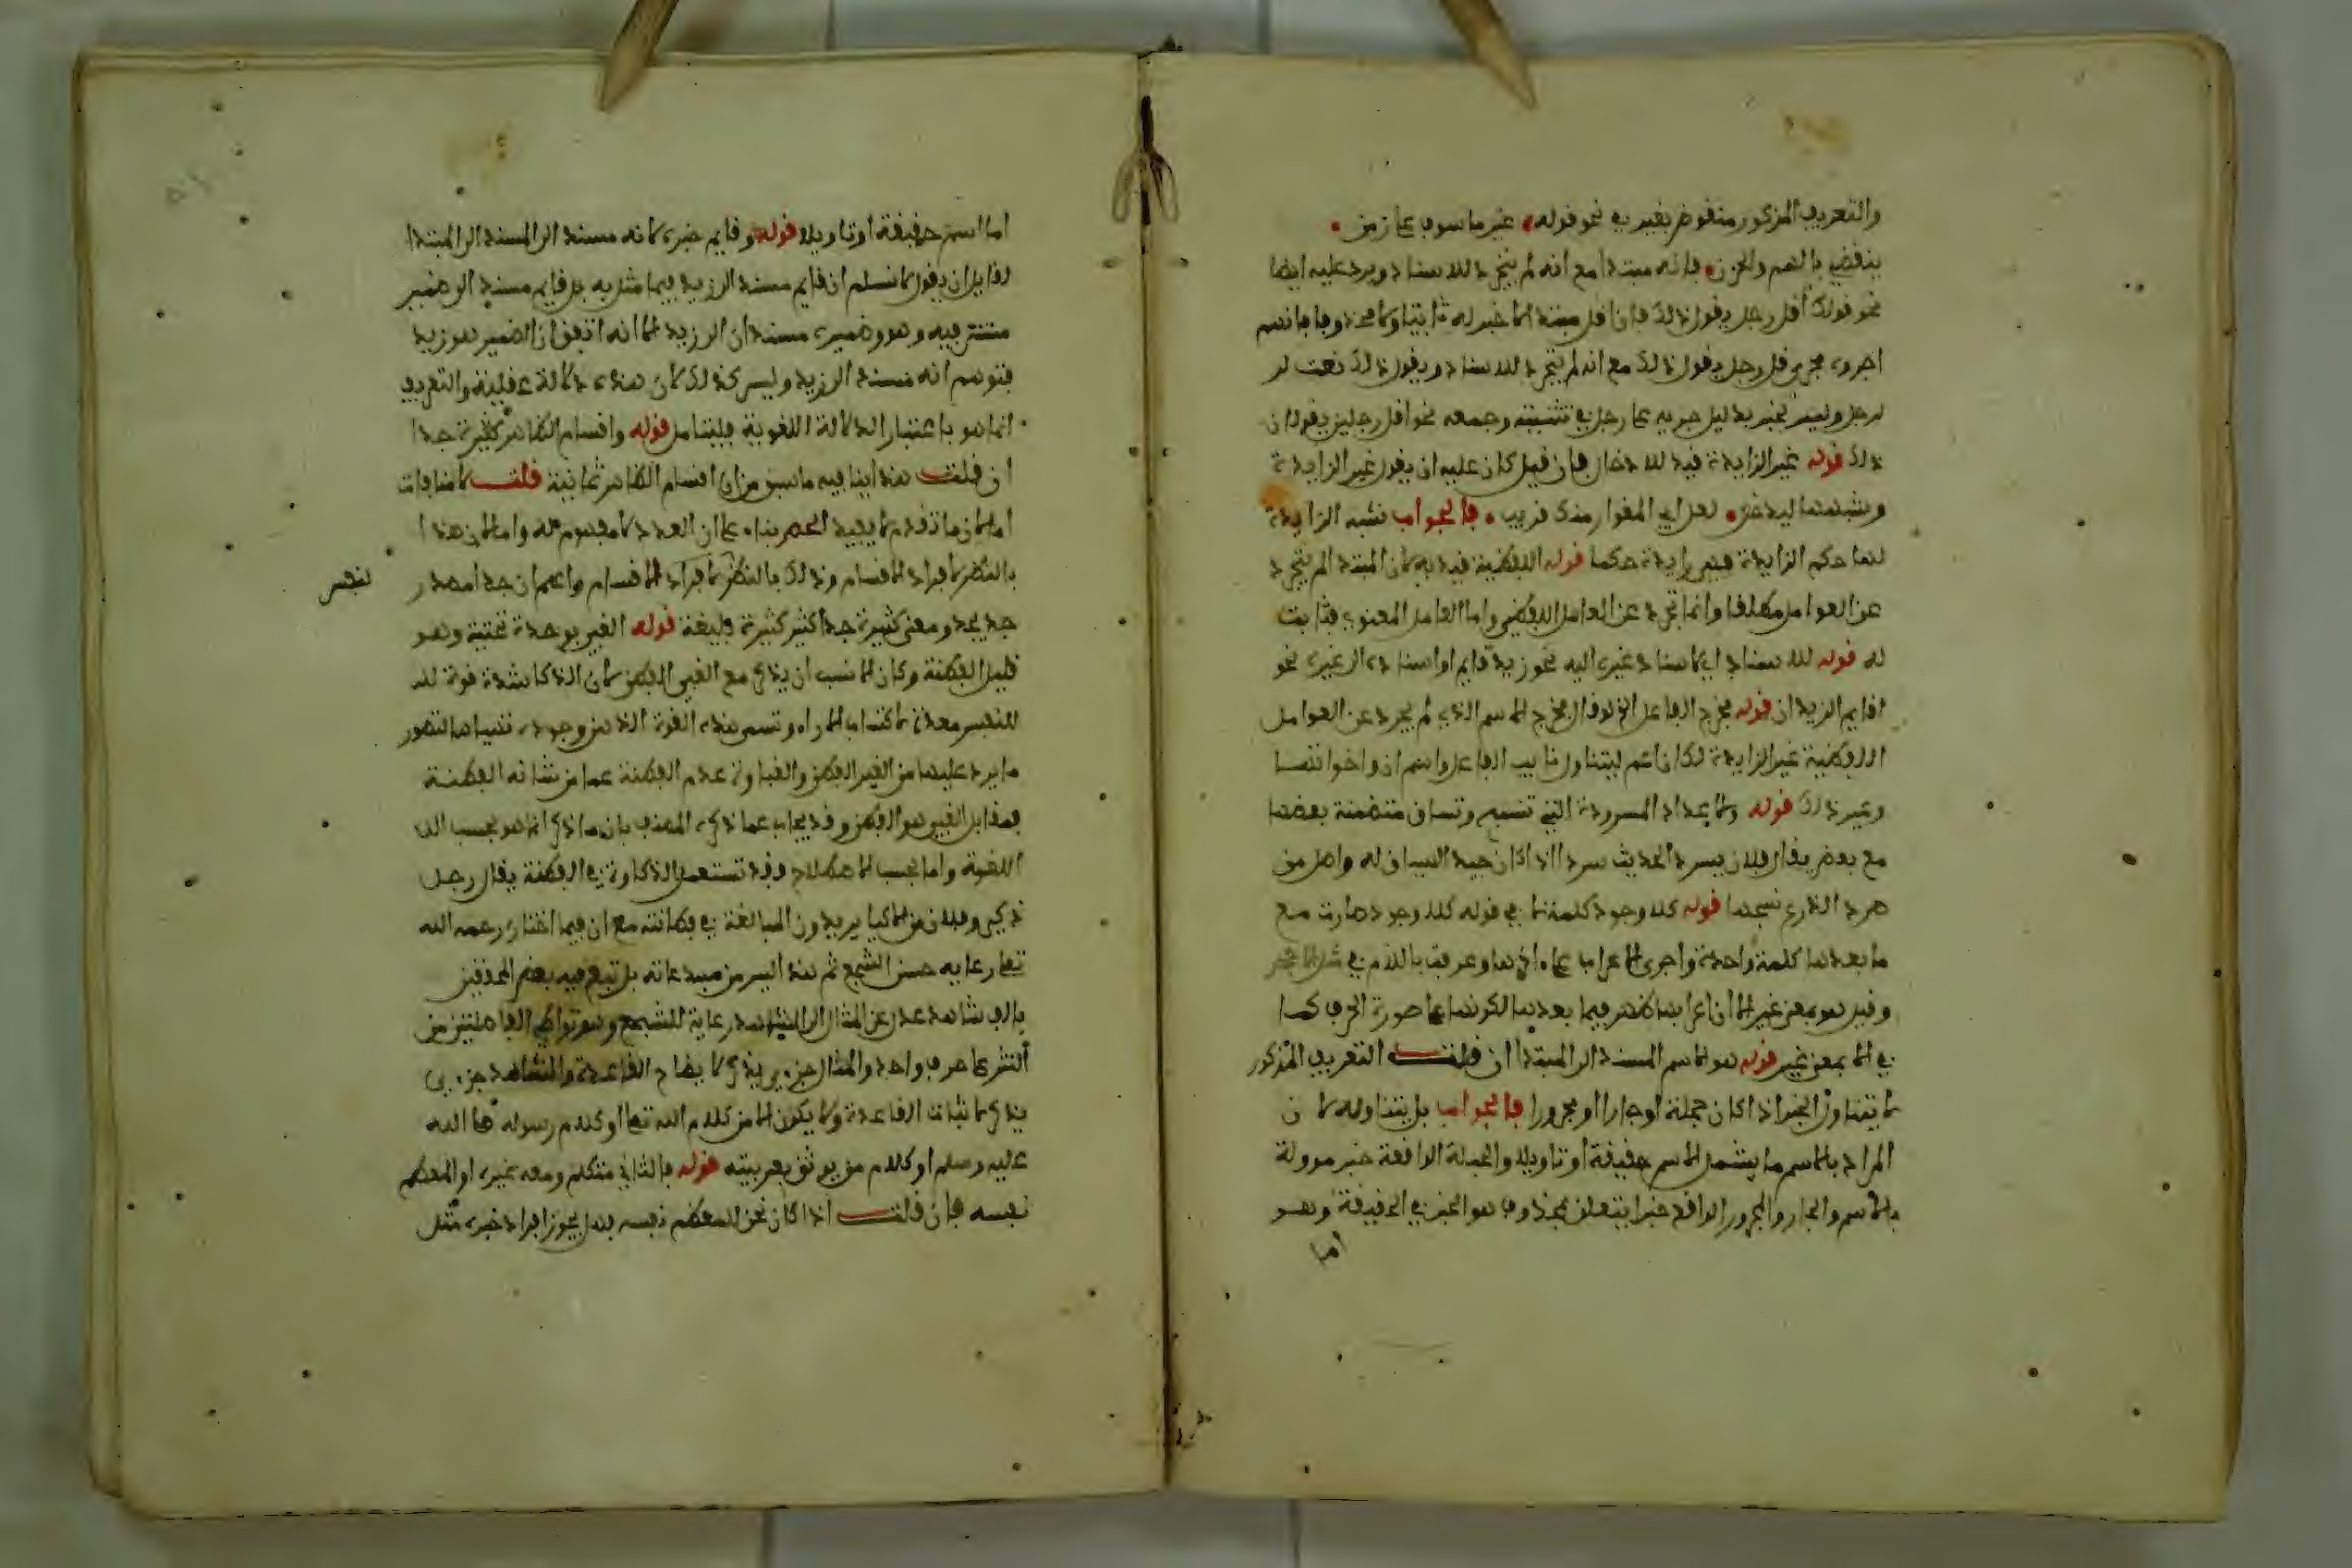 والتعريف المذكور منقوض بغير في نحو قوله غير ماسوف على زمن
ينقضي بالهم والحزن فإنه مبتدا مع انه لم يتجرد للاسناد ويرد عليه ايضا
نحو قولك اقل رجل يقول ذلك فان اقل مبتدا لا خبر له ثابتا ولا محذوفا فانهم
اجروه مجرى قل رجل يقول ذلك مع انه لم يتجرد للاسناد ويقول ذلك نعت لر
لرجل وليس بخبر بدليل جريه على رجل في تثنيته وجمعه نحو اقل رجلين يقولان
ذلك قوله غير الزايدة قيد للادخال فان قيل كان عليه ان يقول غير الزايدة
وشبهها ليدخل لعل ابي المغوار منك قريب فالجواب شبه الزايدة
لها حكم الزايدة فهي زايدة حكما قوله اللفظية قيد به لان المبتدا لم يتجرد
عن العوامل مطلقا وانما تجرد عن العامل اللفظي واما العامل المعنوي فثابت
له قوله للاسناد اي لاسناد غيره اليه نحو زيد قايم او اسناده الى غيره نحو
اقايم الزيدان قوله مخرج الفاعل الخ لو قال مخرج الاسم الذي لم يجرد عن العوامل
اللفظية غير الزايدة لكان اعم ليتناول نايب الفاعل واسم ان واخواتها
وغير ذلك قوله والاعداد المسرودة التي تنسج وتساق متضمنة بعضها
مع بعض يقال فلان يسرد الحديث سردا اذا كان جيد السياق له واصل من
سرد الدرع نسجها قوله كلا وجود كلمة لا في قوله كلا وجود صارت مع
ما بعدها كلمة واحدة واجرى الاعراب على اخرها وعرف باللام في
وقيل هو بمعنى غير الا ان اعرابها ظهر فيما بعدها لكونها على صورة الحرف كما
في الا بمعنى غير قوله هو الاسم المسند الى المبتدا ان قلت التعريف المذكور
لا يتناول الخبر اذا كان جملة او جارا او مجرورا فالجواب بل يتناوله لان
المراد بالاسم ما يشمل الاسم حقيقة او تاويلا والجملة الواقعة خبر موولة
بالاسم والجار والمجرور الواقع خبرا يتعلق بمحذوف هو الخبر في الحقيقة وهو
اما
اما اسم حقيقة او تاويلا قوله وقايم خبره لانه مسند الى المسند الى المبتدا
لقايل ان يقول لا نسلم ان قايم مسند الى زيد فيما مثل به بل قايم مسند الى ضمير
مستتر فيه وهو وضميره مسندان الى زيد الا انه اتفق ان الضمير هو زيد
فتوهم انه مسند الى زيد وليس كذلك لان هذه دلالة عقلية والتعريف
انما هو باعتبار الدلالة اللغوية فليتامل قوله واقسام الظاهر كثيرة جدا
ان قلت هذا ينافيه ما سبق من ان اقسام الظاهر ثمانية قلت لا منافات
اما لان ما تقدم لا يفيد الحصر بناء على ان العدد لا مفهوم له واما لان هذا
بالنظر لافراد الاقسام وذلك بالنظر لافراد الاقسام واعلم ان جدا مصدر
جد يجد ومعنى كثيرة جدا كثير كثيرة بليغة قوله الغبي بوحدة تحتية وهو
قليل الفطنة وكان الانسب ان يذكر مع الغبي الفطن لان الذكا شدة قوة للـ
للنفس معدة لاكتساب الاراء وتسمى هذه القوة الذهن وجودة تهيئها لتصور
ما يرد عليها من الغير الفطن والغباوة عدم الفطنة عما من شانه الفطنة
فمقابل الغبي هو الفطن وقد يجاب عما ذكره المصنف بان ما ذكر انما هو بحسب اللـ
اللغوية واما بحسب الاصطلاح وقد تستعمل الذكاوة في الفطنة يقال رجل
ذكي وفلان من الاذكيا يريدون المبالغة في فطانته مع ان فيما اختاره رحمه الله
تعلى رعاية حسن السجع ثم هذا ليس من مبدعاته بل تبع فيه بعض المحققين
بالف شاهد عدل عن المثال الى الشاهد رعاية للسجع وهو تواطي الفاصلتين من
النثر على حرف واحد والمثال جزءي يذكر لايضاح القاعدة والشاهد جزءي
يذكر لاثبات القاعدة ولا يكون الا من كلام الله تعلى او كلام رسوله صلى الله
عليه وسلم او كلام من يوثق بعربيته قوله فالثاني متكلم ومعه غيره او المعظم
نفسه فان قلت اذا كان نحن للمعظم نفسه فهل يجوز افراد خبره مثل
لنفس